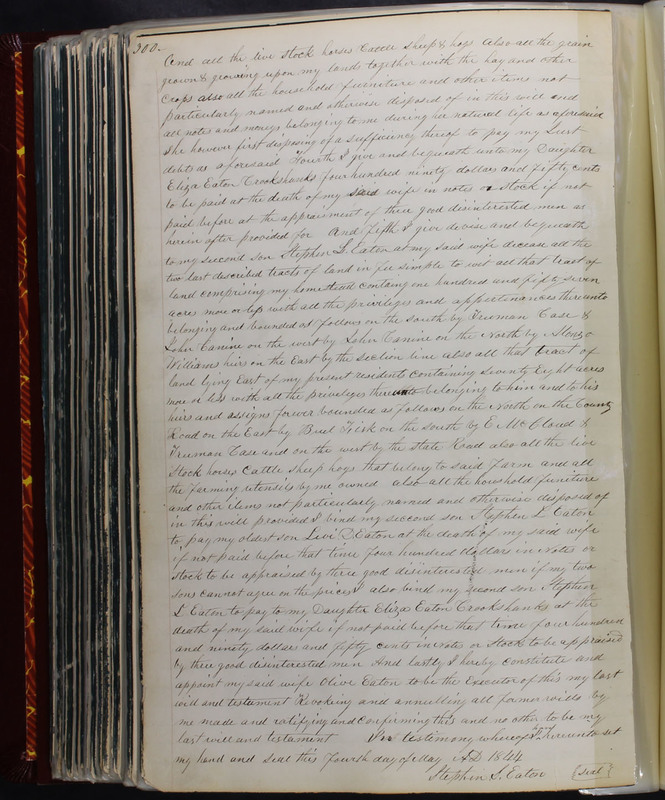 300.
And all the live stock horses Cattle Sheep & hogs also all the grain
grown & growing upon my lands together with the hay and other
Crops also all the household furniture and other items not
particularly named and otherwise disposed of in this will and
all notes and moneys belonging to me during her natural life as aforesaid
She however first disposing of a sufficiency thereof to pay my Just
debts as aforesaid Fourth I give and bequeath unto my Daughter
Eliza Eaton Crookshanks four hundred ninety dollars and fifty cents
to be paid at the death of my said wife in notes or stock if not
paid before at the appraisment of three good disinterested men as
herein after provided for And fifth I give devise and bequeath
to my second son Stephen L. Eaton at my said wife decease all the
two last described tracts of land in fee simple to wit all that tract of
land comprising my homestead containg one hundred and fifty seven
acres more or less with all the privileges and appertinances thereunto
belonging and bounded as follows on the south by Trueman Case &
John Canine on the west by John Canine on the North by
Williams heirs on the East by the section line also all that tract of
land lying East of my present residents containing Seventy Eight acres
more or less with all the priveleges thereunto belonging to him and to his
heirs and assigns forever bounded as follows on the North on the County
Road on the East by Buel Fisk on the south by E. McClaud &
Truman Case and on the west by the State Road also all the live
Stock horses Cattle sheep hogs that belong to said farm and all
the farming utensils by me owned also all the houshold funiture
and other items not particularly named and otherwise disposed of
in this will provided I bind my seccond son Stephen L. Eaton
to pay my oldest son Levi D Eaton at the death of my said wife
if not paid before that time four hundred dollars in notes or
stock to be appraised by three good disinterested men if my two
sons cannot agree on the prices I also bind my second son Stephen
L Eaton to pay to my Daughter Eliza Eaton Crookshanks at the
death of my said wife if not paid before that time four hundred
and ninety dollars and fifty cents in notes or Stock to be appraised
by three good disinterested men And lastly I hereby constitute and
appoint my said wife Olive Eaton to be the Executor of this my last
will and testament Revokeing and annulling all former wills by
me made and ratifying and confirming this and no other to be my
last will and testament In testimony whereof I have hereunto set
my hand and seal this fourth day of May AD 1844
Stephen S. Eaton {seal}